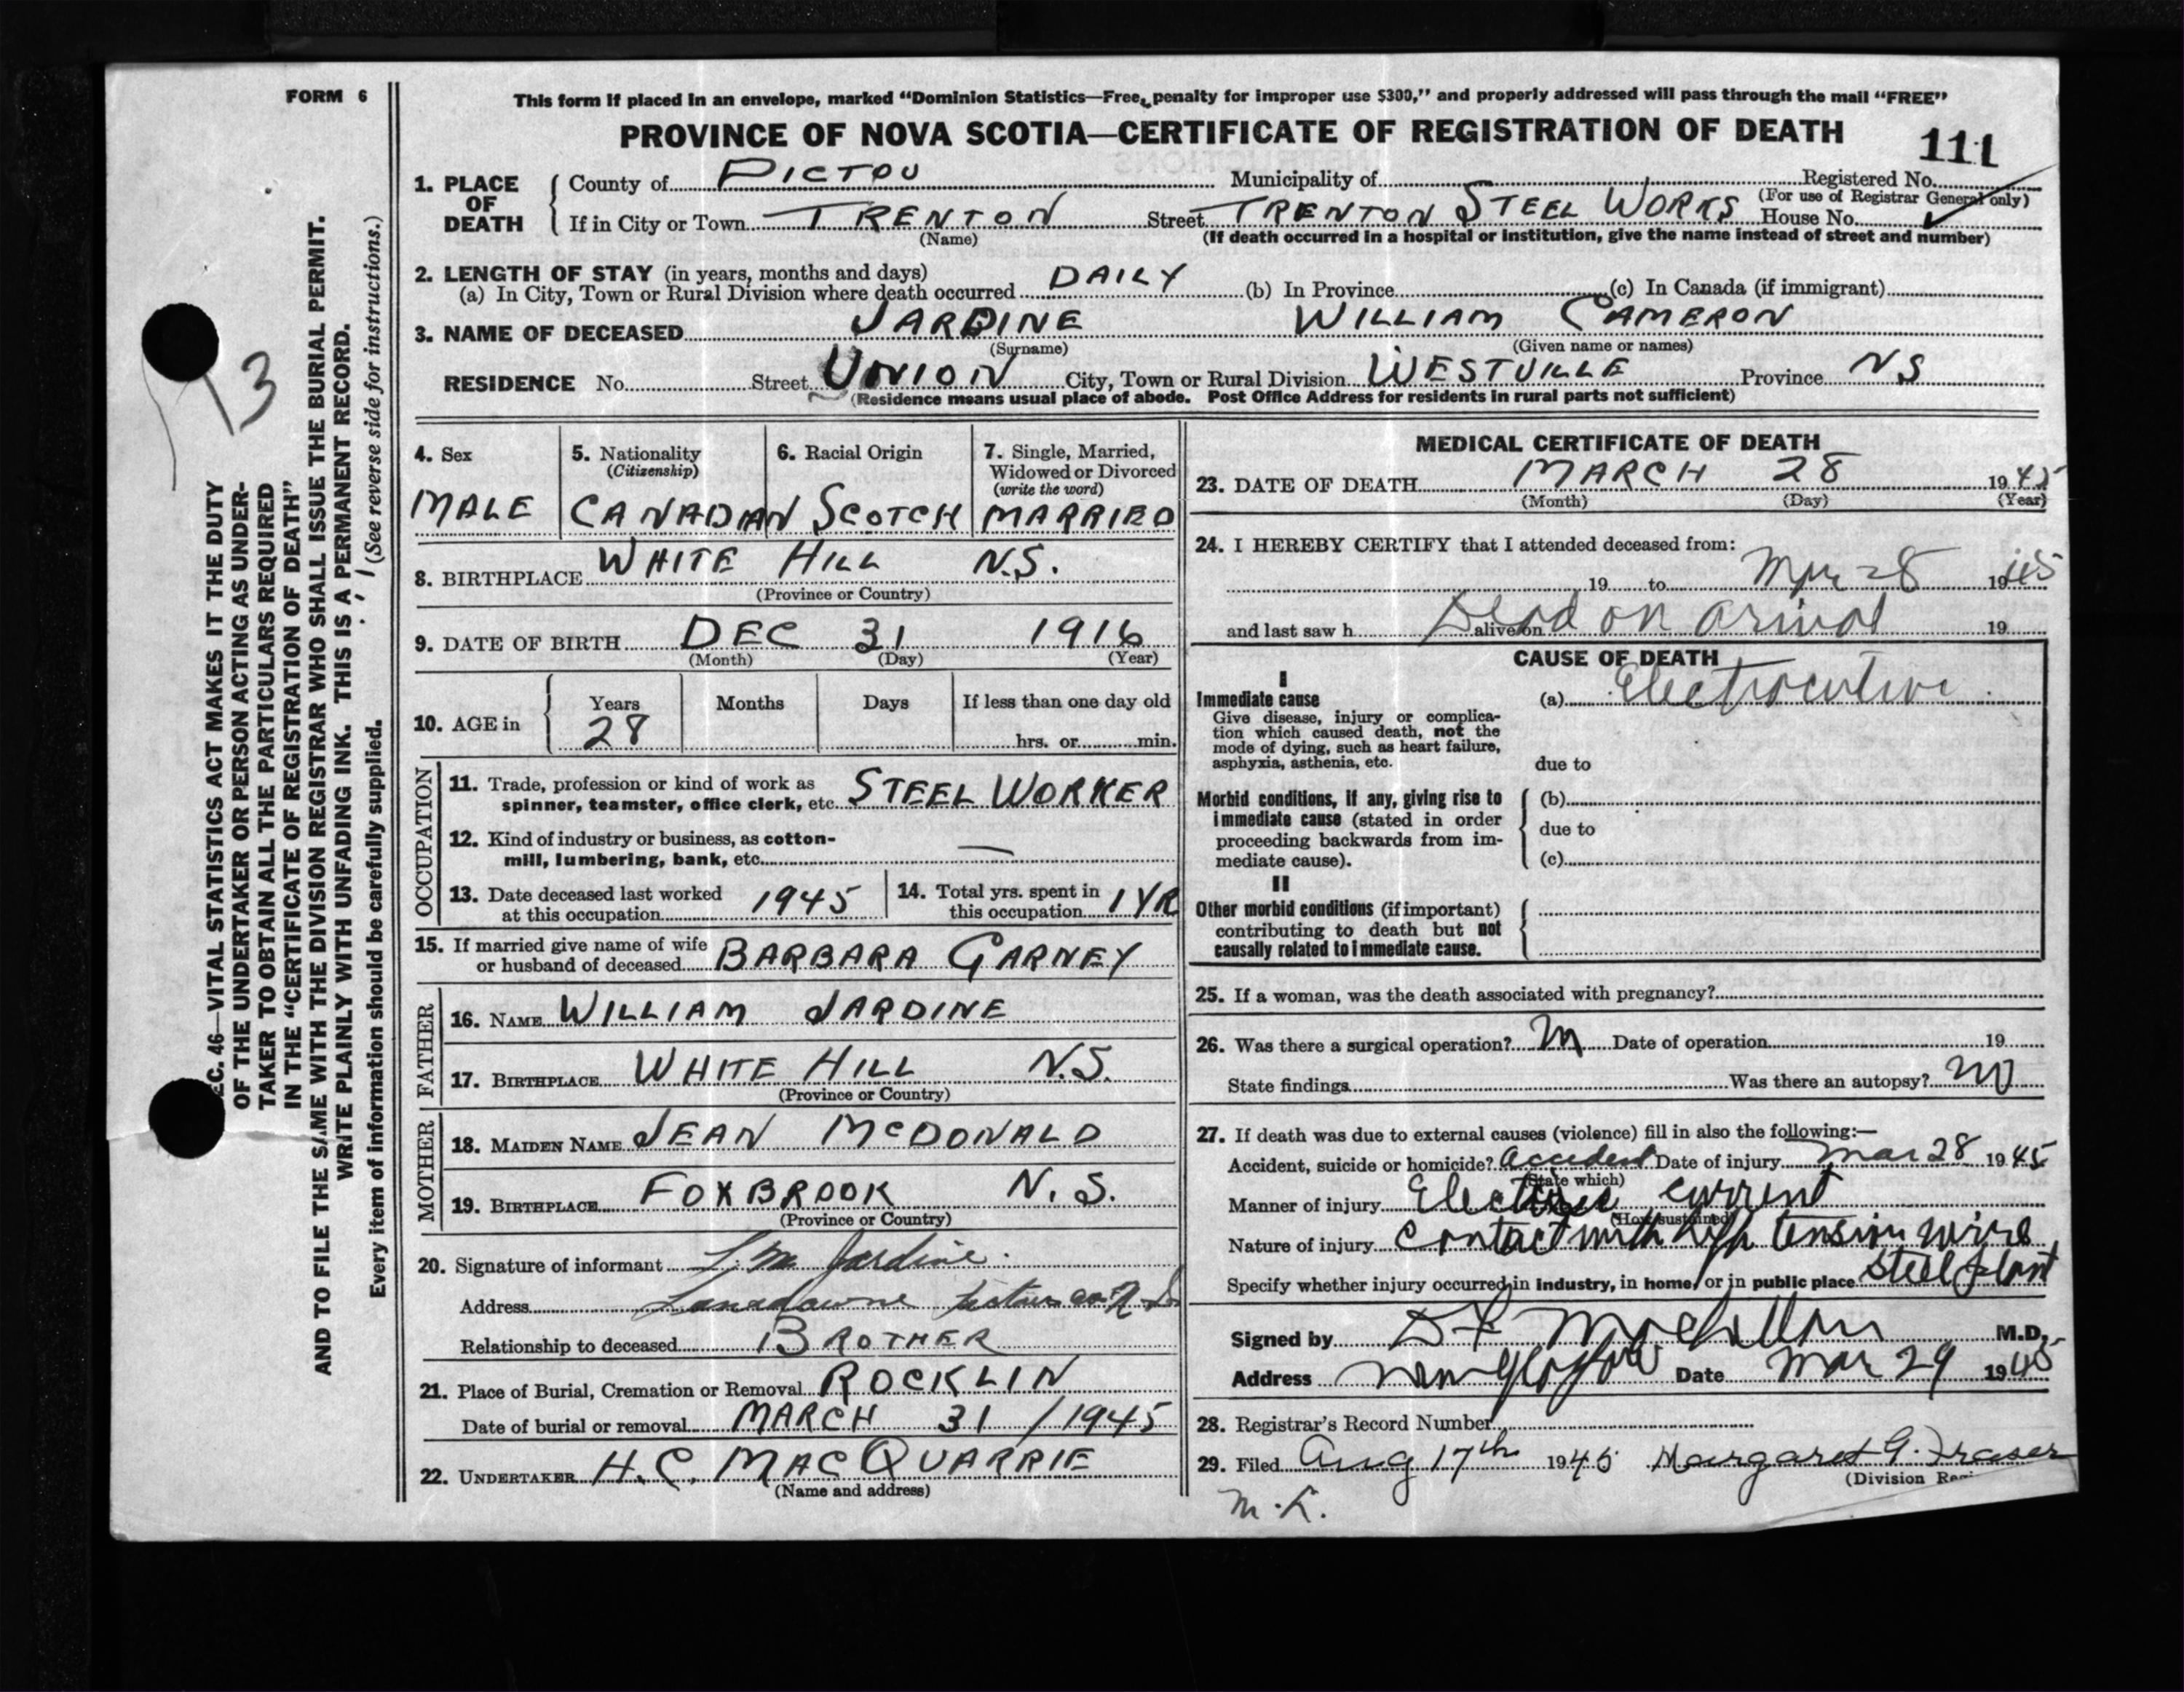 FORM 6
This form if placed in an envelope, marked "Dominion Statistics—Free, penalty for improper use $300," and properly addressed will pass through the mail "FREE"
PROVINCE OF NOVA SCOTIA—CERTIFICATE OF REGISTRATION OF DEATH
111
1. PLACE OF DEATH
County of PICTOU Municipality of Registered No.
(For use of Registrar General only)
If in City or Town TRENTON Street TRENTON STEEL WORKS House No.
(Name) (If death occurred in a hospital or institution, give the name instead of street and number)
2. LENGTH OF STAY (in years, months and days)
(a) In City, Town or Rural Division where death occurred DAILY (b) In Province (c) In Canada (if immigrant)
3. NAME OF DECEASED JARDINE WILLIAM CAMERON
(Surname) (Given name or names)
RESIDENCE No. Street UNION City, Town or Rural Division WESTVILLE Province NS
(Residence means usual place of abode. Post Office Address for residents in rural parts not sufficient)
4. Sex
MALE
5. Nationality
(Citizenship)
CANADIAN
6. Racial Origin
SCOTCH
7. Single, Married,
Widowed or Divorced
(write the word)
MARRIED
8. BIRTHPLACE WHITE HILL N.S.
(Province or Country)
9. DATE OF BIRTH DEC 31 1916
(Month) (Day) (Year)
10. AGE in
Years Months Days If less than one day old
28 hrs. or min.
OCCUPATION
11. Trade, profession or kind of work as
spinner, teamster, office clerk, etc. STEEL WORKER
12. Kind of industry or business, as cotton-
mill, lumbering, bank, etc. —
13. Date deceased last worked
at this occupation 1945
14. Total yrs. spent in
this occupation 1 YR
15. If married give name of wife
or husband of deceased BARBARA GARNEY
FATHER
16. NAME WILLIAM JARDINE
17. BIRTHPLACE WHITE HILL N.S.
(Province or Country)
MOTHER
18. MAIDEN NAME JEAN McDONALD
19. BIRTHPLACE FOXBROOK N.S.
(Province or Country)
20. Signature of informant Jardine
Address Lansdowne Pictou co. N S
Relationship to deceased BROTHER
21. Place of Burial, Cremation or Removal ROCKLIN
Date of burial or removal MARCH 31 / 1945
22. UNDERTAKER H.C. MACQUARRIE
(Name and address)
MEDICAL CERTIFICATE OF DEATH
23. DATE OF DEATH MARCH 28 1945
(Month) (Day) (Year)
24. I HEREBY CERTIFY that I attended deceased from:
19 to Mar 28 1945
and last saw h alive on Dead on arival 19
CAUSE OF DEATH
I
Immediate cause
Give disease, injury or complica-
tion which caused death, not the
mode of dying, such as heart failure,
asphyxia, asthenia, etc.
(a) Electrocution
due to
Morbid conditions, if any, giving rise to
immediate cause (stated in order
proceeding backwards from im-
mediate cause).
(b)
due to
(c)
II
Other morbid conditions (if important)
contributing to death but not
causally related to immediate cause.
25. If a woman, was the death associated with pregnancy?
26. Was there a surgical operation? No Date of operation 19
State findings Was there an autopsy? No
27. If death was due to external causes (violence) fill in also the following:—
Accident, suicide or homicide? Accident Date of injury Mar 28 1945
(State which)
Manner of injury current
(How sustained)
Nature of injury Contact with high tension wire
Specify whether injury occurred in industry, in home, or in public place Steel plant
Signed by M.D.
Address New Glasgow Date Mar 29 1945
28. Registrar's Record Number
29. Filed Aug 17th 1945 Margaret G. Fraser
(Division
M.K.
13
EC. 46—VITAL STATISTICS ACT MAKES IT THE DUTY
OF THE UNDERTAKER OR PERSON ACTING AS UNDER-
TAKER TO OBTAIN ALL THE PARTICULARS REQUIRED
IN THE "CERTIFICATE OF REGISTRATION OF DEATH"
AND TO FILE THE SAME WITH THE DIVISION REGISTRAR WHO SHALL ISSUE THE BURIAL PERMIT.
WRITE PLAINLY WITH UNFADING INK. THIS IS A PERMANENT RECORD.
Every item of information should be carefully supplied. (See reverse side for instructions.)